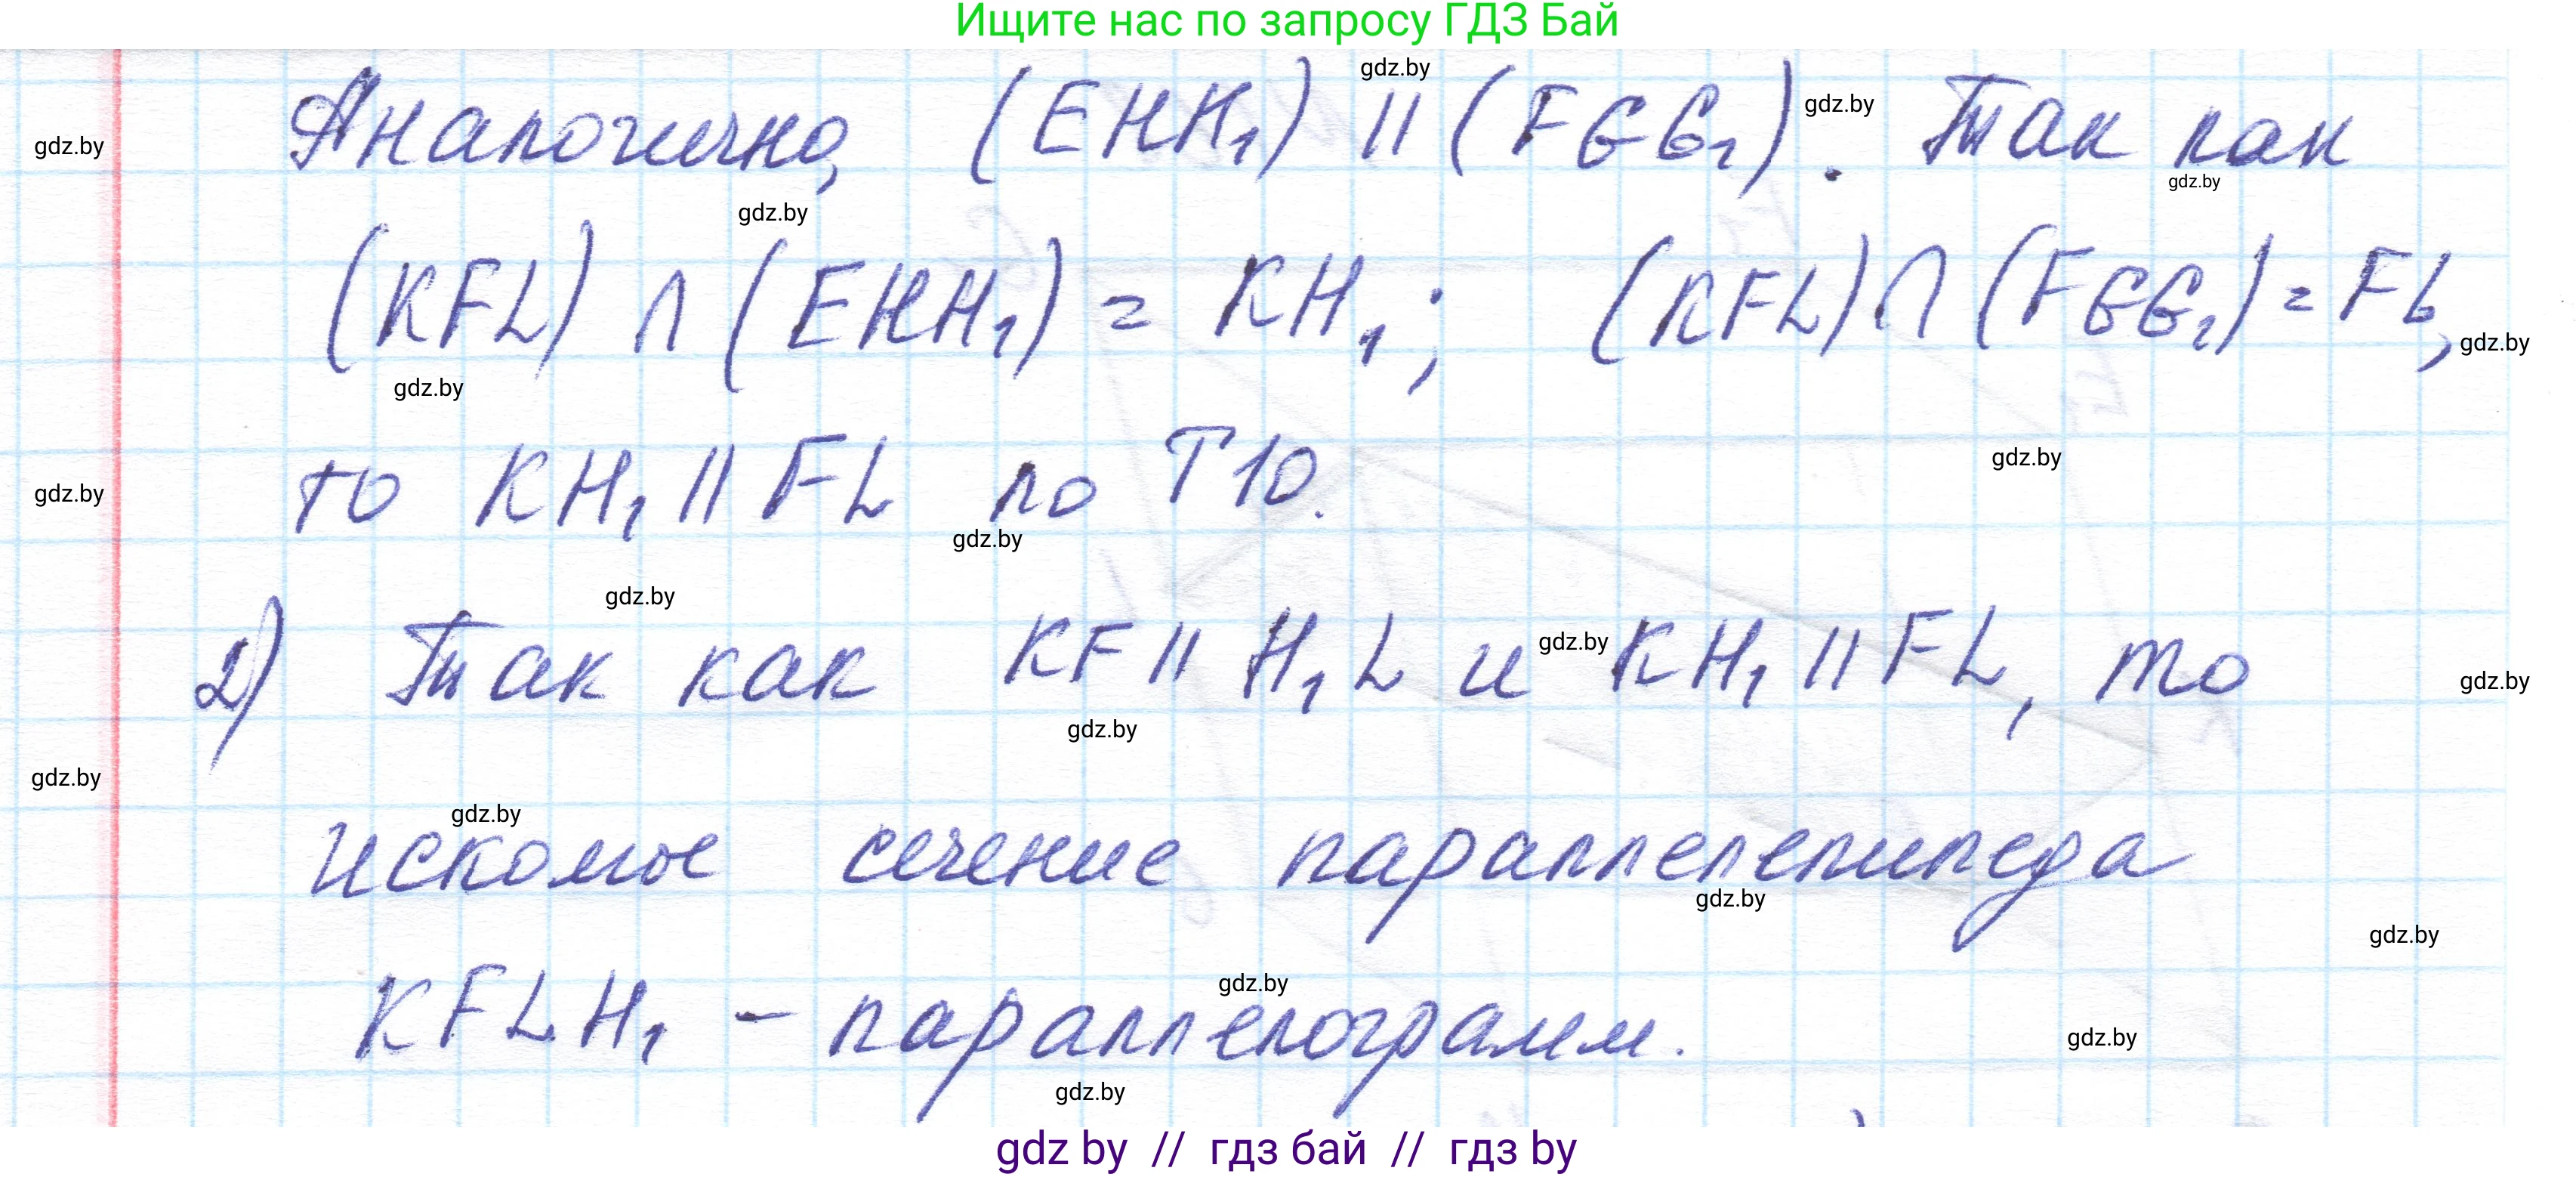 Ищите нас по запросу ГДЗ Бай
gdz.by
Аналогично, (EHH₁) || (FGG₁). Так как
gdz.by
gdz.by
gdz.by
gdz.by
(KFL) ∩ (EHH₁) = KH₁; (KFL) ∩ (FGG₁) = FL,
gdz.by
gdz.by
то KH₁ || FL по Т10.
gdz.by
gdz.by
gdz.by
gdz.by
2) Так как KF || H₁L и KH₁ || FL, то
gdz.by
gdz.by
gdz.by
gdz.by
gdz.by
искомое сечение параллелепипеда
gdz.by
gdz.by
KFLH₁ – параллелограмм.
gdz.by
gdz.by
gdz.by
gdz by // гдз бай // гдз by